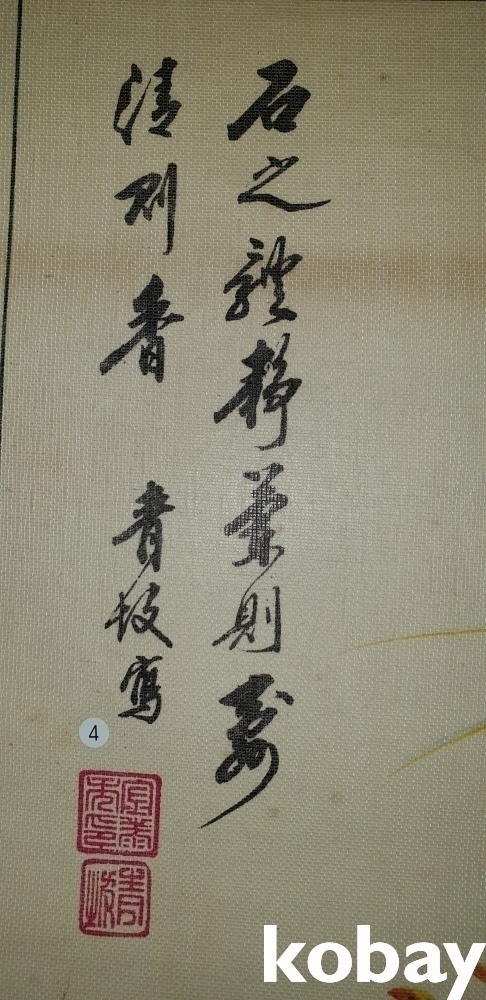 石之體靜則壽
清則香
青坡寫
4
青坡
kobay